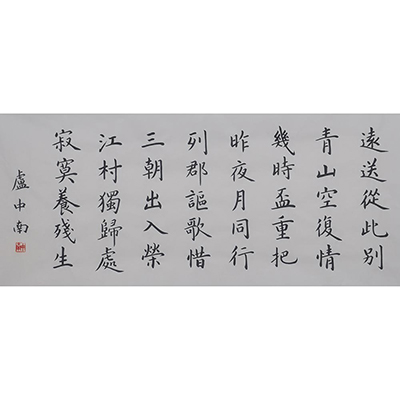 遠送從此別
青山空復情
幾時盃重把
昨夜月同行
列郡謳歌惜
三朝出入榮
江村獨歸處
寂寞養殘生
盧中南